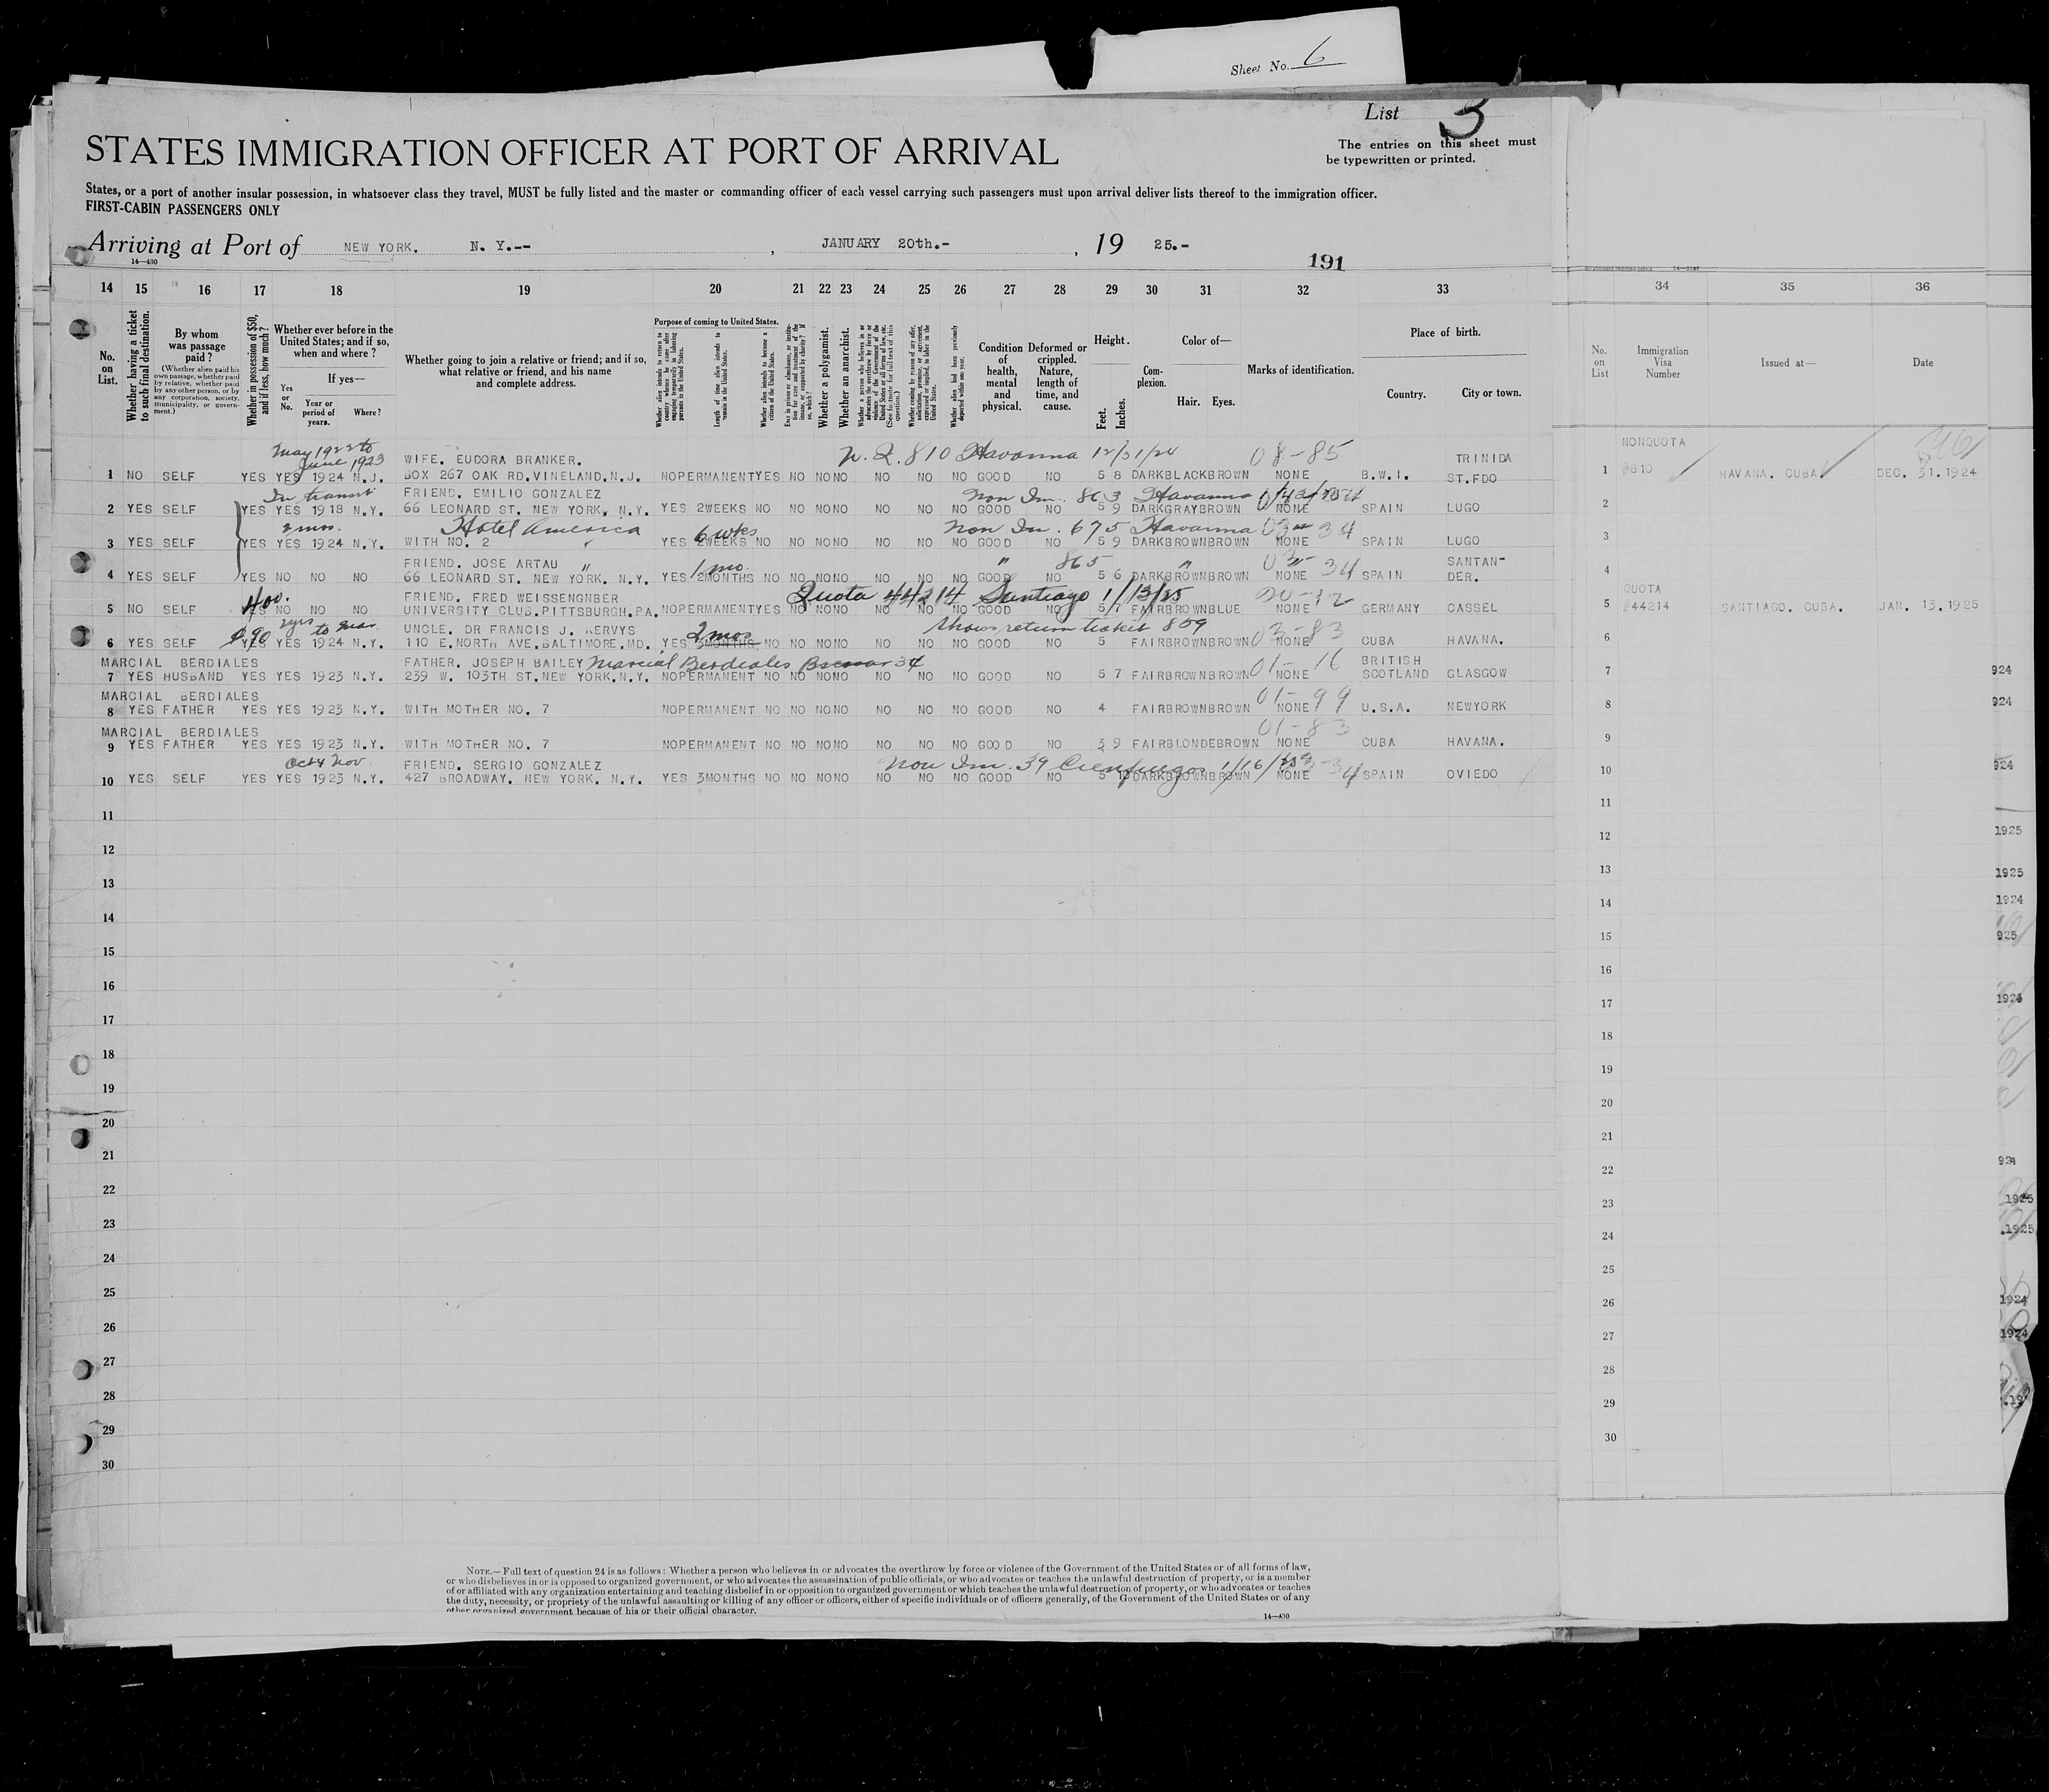 Sheet No. 6
List 3
STATES IMMIGRATION OFFICER AT PORT OF ARRIVAL
The entries on this sheet must
be typewritten or printed.
States, or a port of another insular possession, in whatsoever class they travel, MUST be fully listed and the master or commanding officer of each vessel carrying such passengers must upon arrival deliver lists thereof to the immigration officer.
FIRST-CABIN PASSENGERS ONLY
Arriving at Port of NEW YORK. N. Y.-- , JANUARY 20th.- , 19 25.-
14—430
191
14 15 16 17 18 19 20 21 22 23 24 25 26 27 28 29 30 31 32 33 34 35 36
No. on List.
Whether having a ticket to such final destination.
By whom was passage paid?
(Whether alien paid his own passage, whether paid by relative, whether paid by any other person, or by any corporation, society, municipality, or government.)
Whether in possession of $50, and if less, how much?
Whether ever before in the United States; and if so, when and where?
If yes—
Yes or No.
Year or period of years.
Where?
Whether going to join a relative or friend; and if so, what relative or friend, and his name and complete address.
Purpose of coming to United States.
Whether alien intends to return to country whence he came after engaging temporarily in laboring pursuits in the United States.
Length of time alien intends to remain in the United States.
Whether alien intends to become a citizen of the United States.
Whether a polygamist.
Whether an anarchist.
Condition of health, mental and physical.
Deformed or crippled. Nature, length of time, and cause.
Height.
Feet. Inches.
Complexion.
Color of—
Hair. Eyes.
Marks of identification.
Place of birth.
Country. City or town.
No. on List
Immigration Visa Number
Issued at—
Date
May 1922 to
June 1923
N.Q. 810 Havanna 12/31/24 08-85
WIFE. EUDORA BRANKER. TRINIDA
1 NO SELF YES YES 1924 N.J. BOX 267 OAK RD.VINELAND.N.J. NO PERMANENT YES NO NO NO NO NO NO GOOD NO 5 8 DARK BLACK BROWN NONE B.W.I. ST.FDO
NONQUOTA
1 #810 HAVANA. CUBA DEC. 31.1924
In transit
FRIEND. EMILIO GONZALEZ Non Im. 863 Havanna
2 YES SELF YES YES 1918 N.Y. 66 LEONARD ST. NEW YORK. N.Y. YES 2WEEKS NO NO NO NO NO NO NO GOOD NO 5 9 DARK GRAY BROWN NONE SPAIN LUGO
2 mos. Hotel America 6 wks Non Im. 675 Havanna 03-34
3 YES SELF YES YES 1924 N.Y. WITH NO. 2 YES 2WEEKS NO NO NO NO NO NO NO GOOD NO 5 9 DARK BROWN BROWN NONE SPAIN LUGO
FRIEND. JOSE ARTAU " 1 mo. " 865 " 03-34 SANTAN-
4 YES SELF YES NO NO NO 66 LEONARD ST. NEW YORK. N.Y. YES 2MONTHS NO NO NO NO NO NO NO GOOD NO 5 6 DARK BROWN BROWN NONE SPAIN DER.
400. FRIEND. FRED WEISSENGNBER Quota 44214 Santiago 1/13/25
5 NO SELF YES NO NO NO UNIVERSITY CLUB.PITTSBURGH.PA. NO PERMANENT YES NO NO NO NO NO NO GOOD NO 5 7 FAIR BROWN BLUE NONE GERMANY CASSEL
QUOTA
5 #44214 SANTIAGO. CUBA. JAN. 13.1925
$90 2yrs to mar. UNCLE. DR FRANCIS J. KERVYS 2 mos shows return ticket 809 03-83
6 YES SELF YES YES 1924 N.Y. 110 E.NORTH AVE.BALTIMORE.MD. YES 3MONTHS. NO NO NO NO NO NO NO GOOD NO 5 FAIR BROWN BROWN NONE CUBA HAVANA.
MARCIAL BERDIALES FATHER. JOSEPH BAILEY Marcial Berdiales 01-16 BRITISH
7 YES HUSBAND YES YES 1923 N.Y. 239 W. 103TH ST.NEW YORK.N.Y. NO PERMANENT NO NO NO NO NO NO NO GOOD NO 5 7 FAIR BROWN BROWN NONE SCOTLAND GLASGOW
MARCIAL BERDIALES 01-99
8 YES FATHER YES YES 1923 N.Y. WITH MOTHER NO. 7 NO PERMANENT NO NO NO NO NO NO NO GOOD NO 4 FAIR BROWN BROWN NONE U.S.A. NEWYORK
MARCIAL BERDIALES 01-83
9 YES FATHER YES YES 1923 N.Y. WITH MOTHER NO. 7 NO PERMANENT NO NO NO NO NO NO NO GOOD NO 3 9 FAIR BLONDE BROWN NONE CUBA HAVANA.
Oct & Nov FRIEND. SERGIO GONZALEZ Non Im. 39 Cienfuegos 1/16/25
10 YES SELF YES YES 1923 N.Y. 427 BROADWAY. NEW YORK. N.Y. YES 3MONTHS NO NO NO NO NO NO NO GOOD NO 5 DARK BROWN BROWN NONE SPAIN OVIEDO
11
12
13
14
15
16
17
18
19
20
21
22
23
24
25
26
27
28
29
30
NOTE.—Full text of question 24 is as follows: Whether a person who believes in or advocates the overthrow by force or violence of the Government of the United States or of all forms of law,
or who disbelieves in or is opposed to organized government, or who advocates the assassination of public officials, or who advocates or teaches the unlawful destruction of property, or is a member
of or affiliated with any organization entertaining and teaching disbelief in or opposition to organized government or which teaches the unlawful destruction of property, or who advocates or teaches
the duty, necessity, or propriety of the unlawful assaulting or killing of any officer or officers, either of specific individuals or of officers generally, of the Government of the United States or of any
other organized government because of his or their official character.
14—430